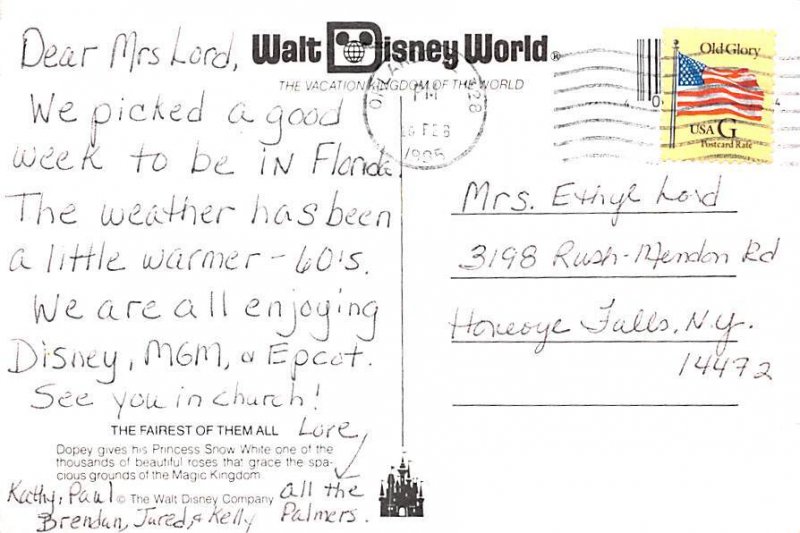 Dear Mrs Lord,
We picked a good
week to be in Florida.
The weather has been
a little warmer - 60's.
We are all enjoying
Disney, MGM, & Epcot.
See you in church!
Love,
all the
Palmers.
Kathy, Paul
Brendan, Jared, & Kelly
Walt Disney World®
THE VACATION KINGDOM OF THE WORLD
THE FAIREST OF THEM ALL
Dopey gives his Princess Snow White one of the
thousands of beautiful roses that grace the spa-
cious grounds of the Magic Kingdom.
© The Walt Disney Company
PM
16 FEB
1995
328
Old Glory
USA G
Postcard Rate
Mrs. Ethyl Lord
3198 Rush-Mendon Rd
Honeoye Falls, N.y.
14472